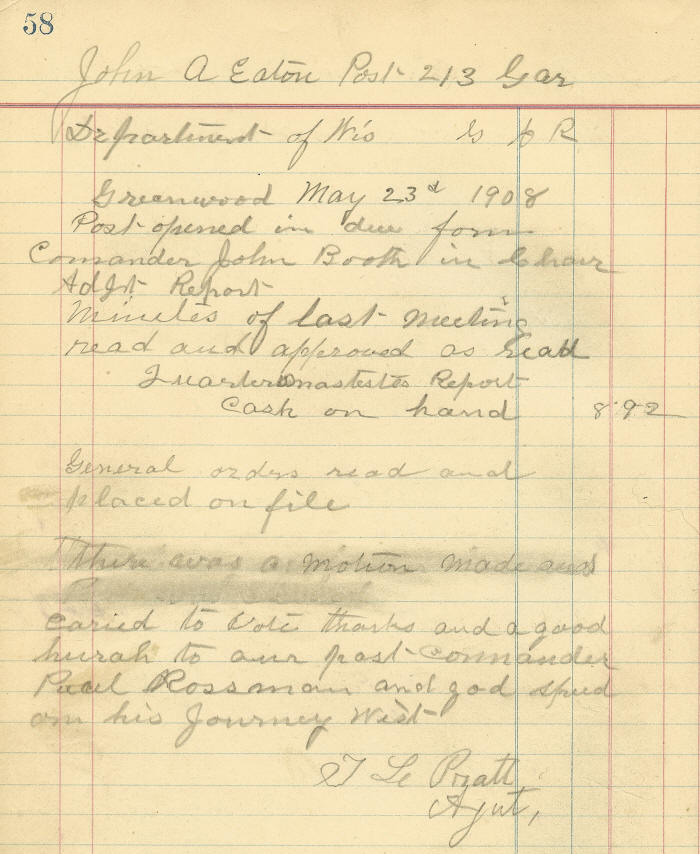 58
John A Eaton Post 213 Gar
Department of Wis G A R
Greenwood May 23d 1908
Post opened in due form
Comander John Booth in Chair
AdJt Report
Minutes of last meeting
read and approved as read
Quartermastetes Report
Cash on hand 8 92
General orders read and
placed on file
There was a motion made and
caried to vote thanks and a good
hurah to our past Commander
Paul Rossman and god speed
on his Journey West
Pratt
Ajut,